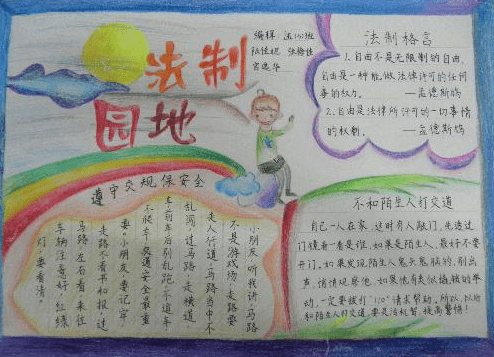 法制
园地
编辑：
法制格言
1.自由不是无限制的自由，
自由是一种能做法律许可的任何
事的权力。 ——孟德斯鸠
2.自由是法律所许可的一切事情
的权利。 ——孟德斯鸠
遵守交规保安全
小朋友听我讲，马路
不是游戏场，走路要
走人行道，马路当中不
乱闯，过马路，走横道
车前车后别乱跑，不追车
不候车，交通安全最重
要，小朋友，要记牢，
走路不看书和报，过
马路，左右看，来往
车辆注意好，红绿
灯，要看清，
不和陌生人打交道
自己一人在家，这时有人敲门，先透过
门镜看一看是谁，如果是陌生人，最好不要
开门，如果发现陌生人鬼鬼祟祟的，别出
声，悄悄观察他，如果他有类似撬锁的举
动，一定要拨打"110"请求帮助。所以，以后
和陌生人打交道，要灵活机智，提高警惕！